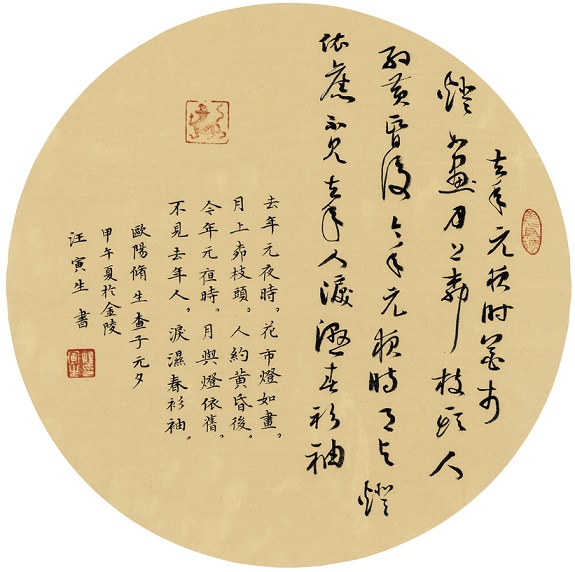 去年元夜時花市
燈如畫月上柳枝頭人
約黃昏後今年元夜時月與燈
依舊不見去年人淚濕春衫袖
去年元夜時，花市燈如畫，
月上柳枝頭，人約黃昏後，
今年元夜時，月與燈依舊，
不見去年人，淚濕春衫袖，
歐陽脩生查子元夕
甲午夏於金陵
汪寅生書